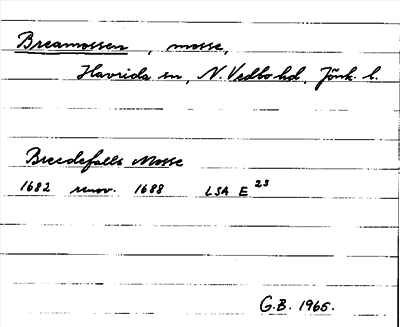 Breamossen, mosse,
Haurida sn, N. Vedbo hd, Jönk. l.
Breedefalls Mosse
1682 renov. 1688 LSA E 23
G.B. 1965.